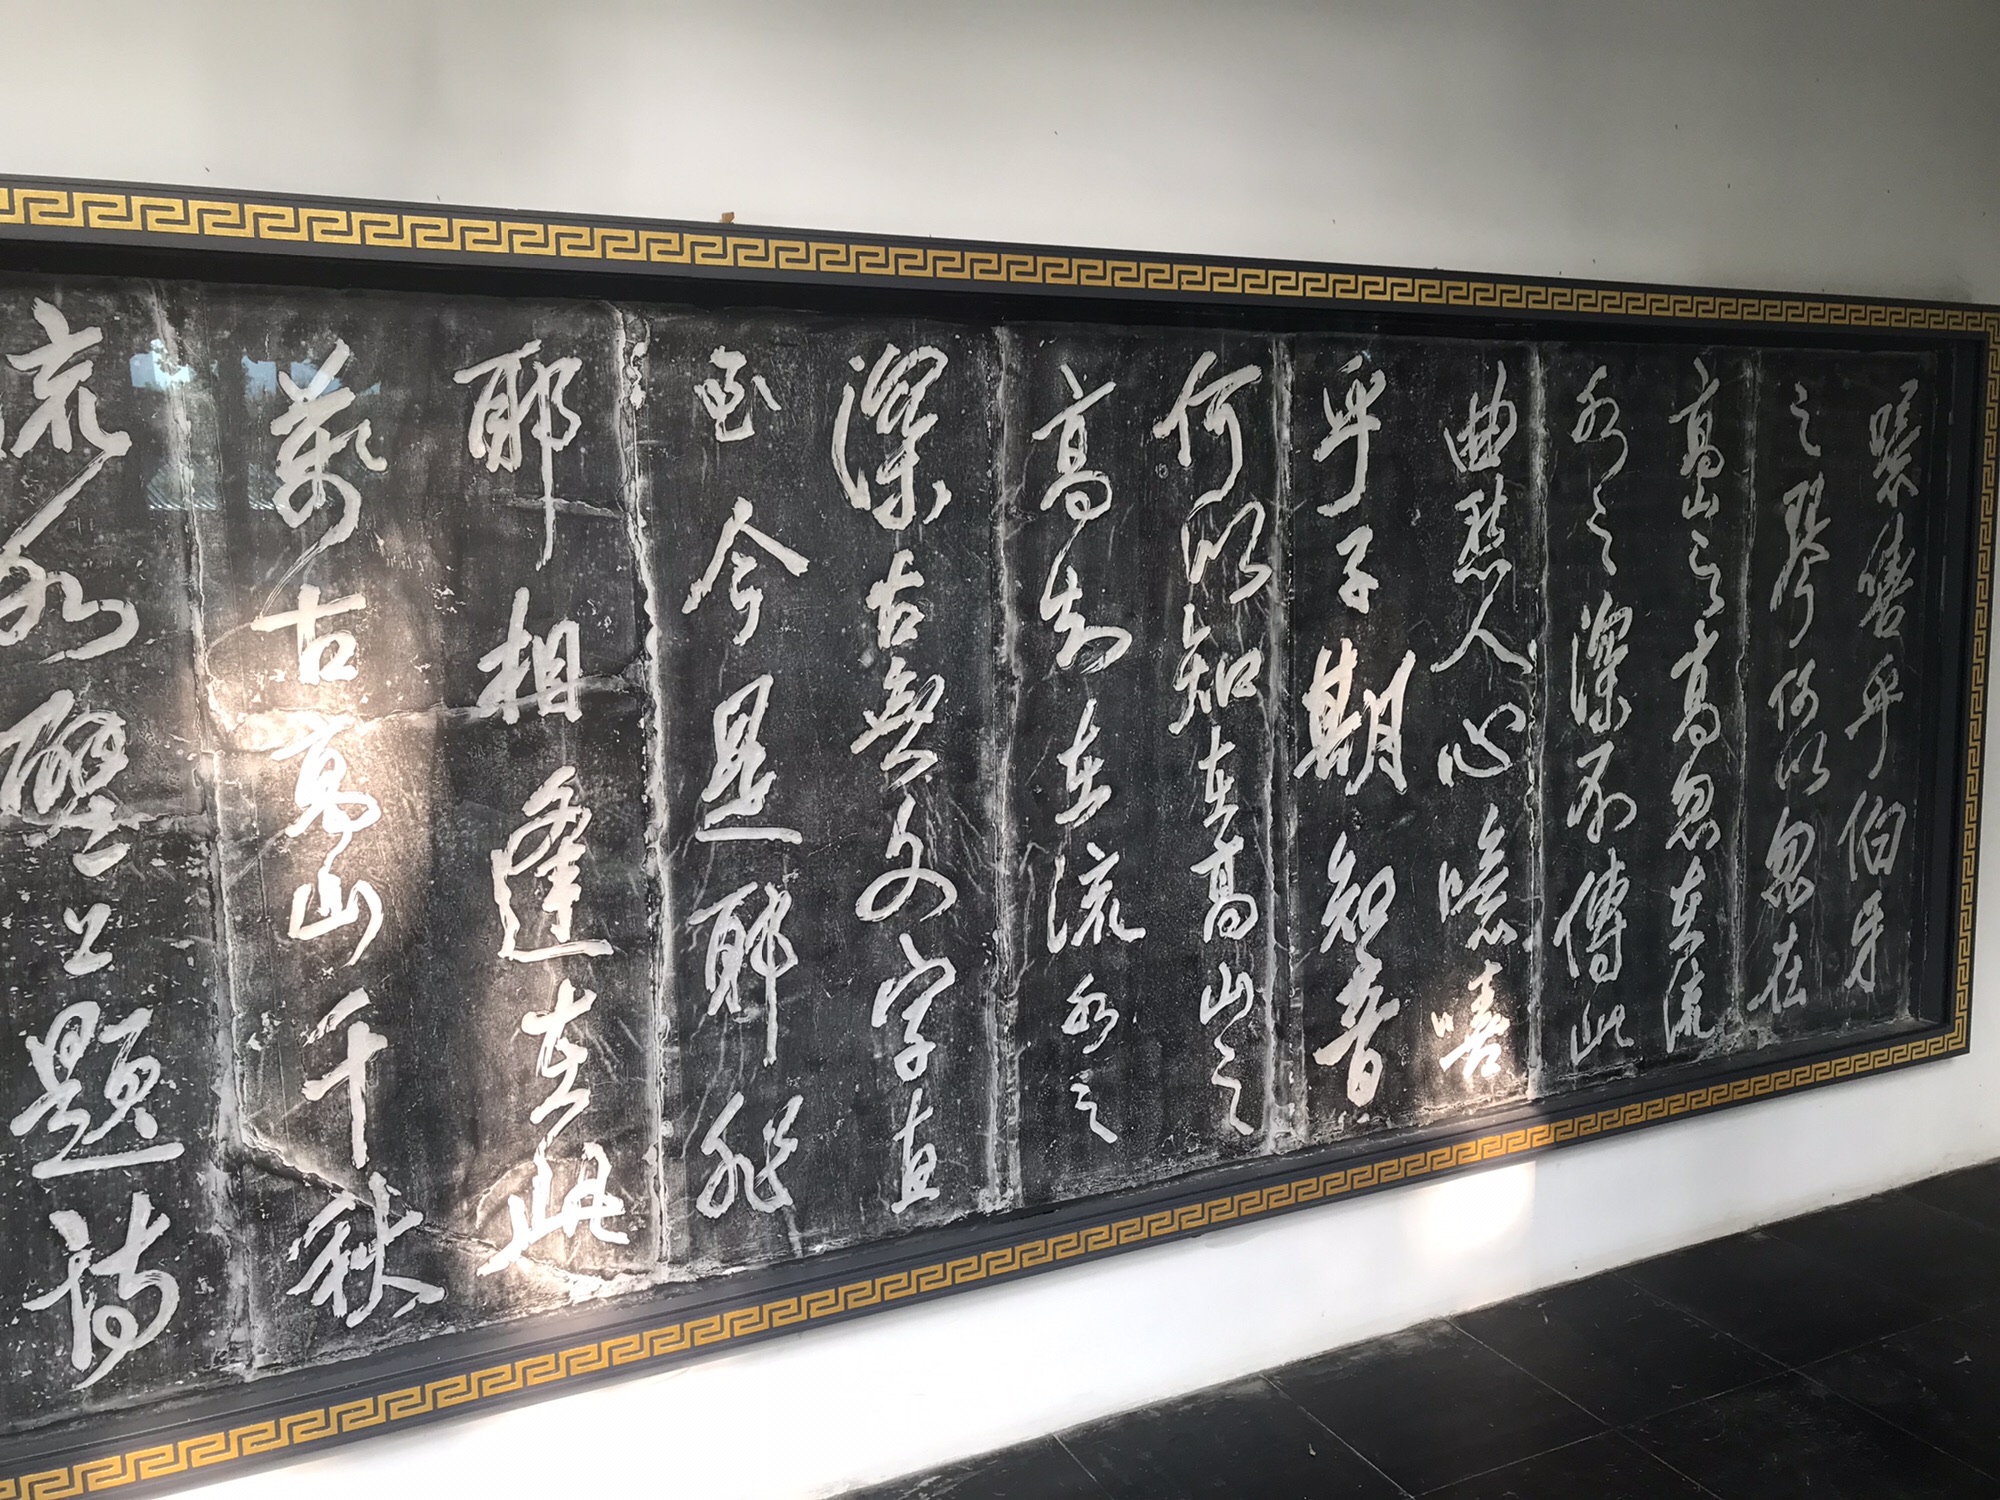 噫嘻乎伯牙
之琴何以忽在
高山之高忽在流
水之深不傳此
曲愁人心噫嘻
乎子期知音
何以知在高山之
高知在流水之
深古無文字直
至今是耶非
耶相逢在此
萬古高山千秋
流水壁上題詩